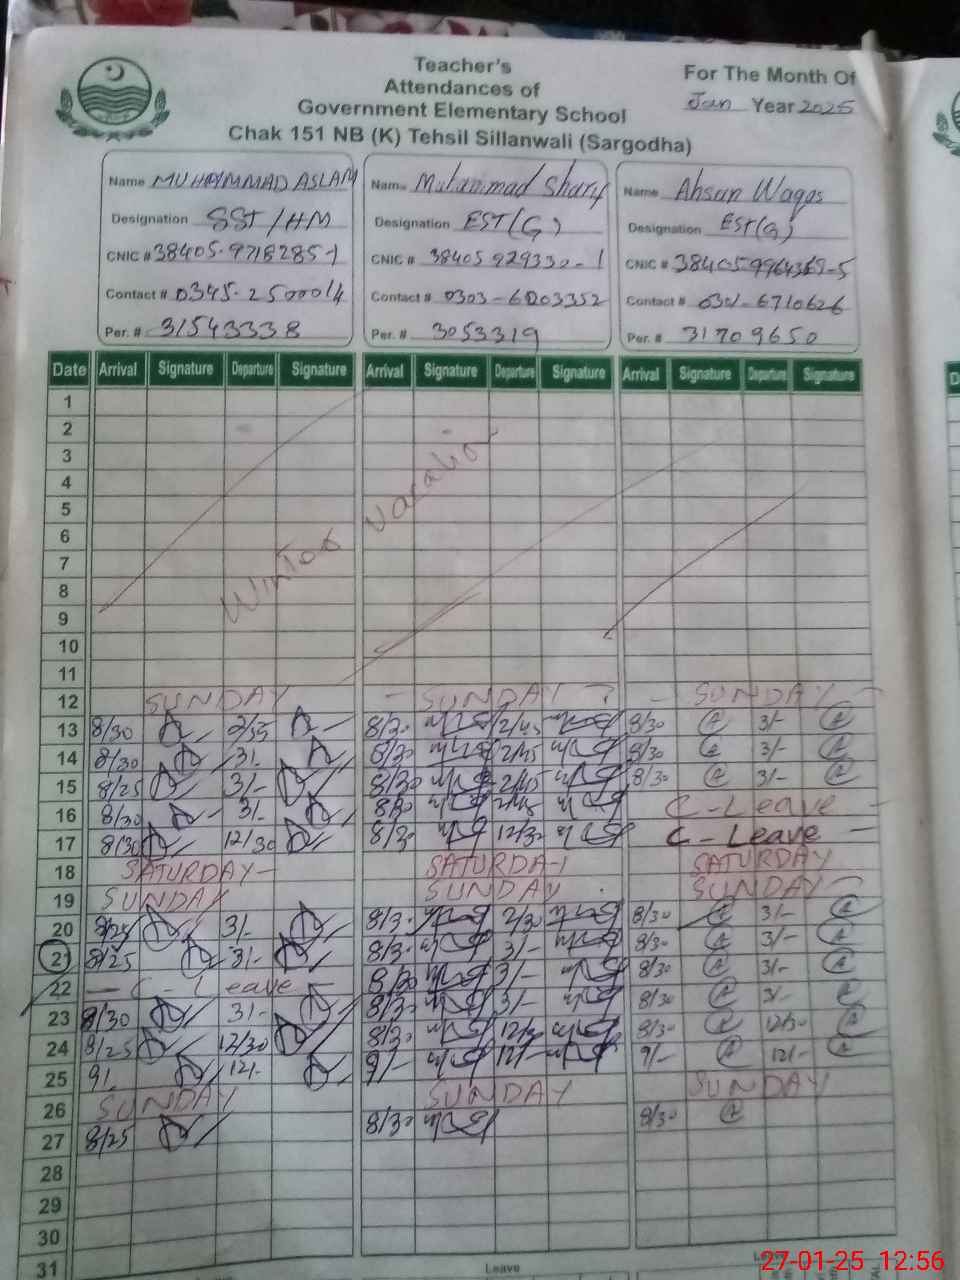 Teacher's
Attendances of
Government Elementary School
Chak 151 NB (K) Tehsil Sillanwali (Sargodha)
For The Month Of
Jan Year 2025
Name MUHAMMAD ASLAM
Designation SST/HM
CNIC # 38405-9718285-1
Contact # 0345-2500014
Per. # 31543338
Name Muhammad Sharif
Designation EST(G)
CNIC # 38405 929330-1
Contact # 0303-6203352
Per. # 3053319
Name Ahsan Waqas
Designation EST(G)
CNIC # 38405 9964369-5
Contact # 0301-6710626
Per. # 31709650
Date Arrival Signature Departure Signature Arrival Signature Departure Signature Arrival Signature Departure Signature
1
2
3
4
5
6
7
8
9
10
11
Winter vacation
12 SUNDAY SUNDAY SUNDAY
13 8/30 2/35 8/30 2/45 8/30 3/-
14 8/30 3/- 8/30 2/45 8/30 3/-
15 8/25 3/- 8/30 2/45 8/30 3/-
16 8/30 3/- 8/30 2/45 C-Leave
17 8/30 12/30 8/30 12/30 C-Leave
18 SATURDAY SATURDAY SATURDAY
19 SUNDAY SUNDAY SUNDAY
20 8/25 3/- 8/30 2/30 8/30 3/-
21 8/25 3/- 8/30 3/- 8/30 3/-
22 C-Leave 8/30 3/- 8/30 3/-
23 8/30 3/- 8/30 3/- 8/30 3/-
24 8/25 12/30 8/30 12/30 8/30 12/30
25 9/- 12/- 9/- 12/- 9/- 12/-
26 SUNDAY SUNDAY SUNDAY
27 8/25 8/30 8/30
28
29
30
31
Leave
Leave
27-01-25 12:56